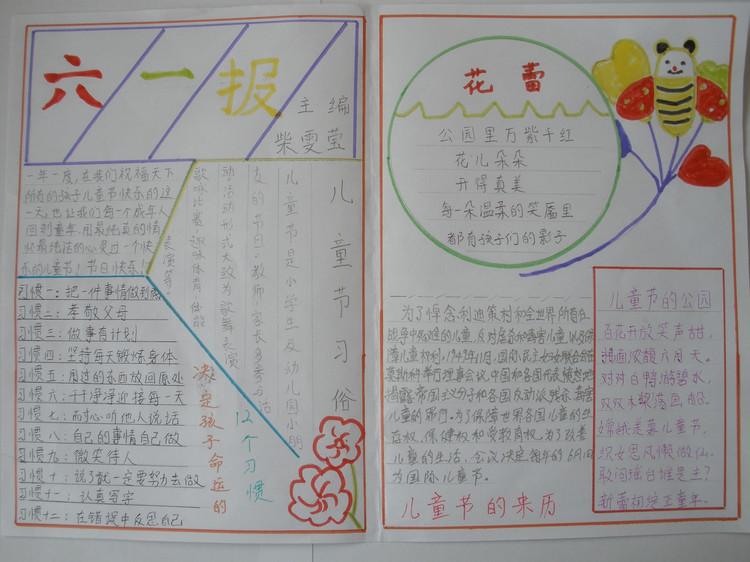 六一报
主编
柴雯莹
一年一度,在我们祝福天下
所有的孩子儿童节快乐的这
一天,也让我们每一个成年人
回到童年,用最纯真的情
些最纯洁的心灵过一个快
乐的儿童节!节日快乐!
习惯一:把一件事情做到底
习惯二:孝敬父母
习惯三:做事有计划
习惯四:坚持每天锻炼身体
习惯五:用过的东西放回原处
习惯六:干干净净迎接每一天
习惯七:耐心听他人说话
习惯八:自己的事情自己做
习惯九:微笑待人
习惯十:说了就一定要努力去做
习惯十一:认真写字
习惯十二:在错误中反思自己
决定孩子命运的
12个习惯
儿童节习俗
儿童节是小学生及幼儿园小朋
友的节日。教师,家长多参与活
动活动形式大致为歌舞表演
歌咏比赛,趣味体育,体能
表演等。
花蕾
公园里万紫千红
花儿朵朵
开得真美
每一朵温柔的笑靥里
都有孩子们的影子
为了悼念利迪策村和全世界所有在
战争中死难的儿童,反对虐杀和毒害儿童,以及保
障儿童权利,1949年11月,国际民主妇女联合会在
莫斯科举行理事会议,中国和各国代表愤怒地
揭露帝国主义分子和各国反动派残杀、毒害
儿童的罪行。为了保障世界各国儿童的生
存权、保健权和受教育权,为了改善
儿童的生活,会议决定每年的6月1日
为国际儿童节。
儿童节的来历
儿童节的公园
百花开放笑声甜,
六月天。
对对白鸭游碧水,
双双木桨荡画船。
嫦娥羡慕儿童节,
织女思凡懒做仙。
敢问瑶台谁是主?
新蕾相绽正童年。